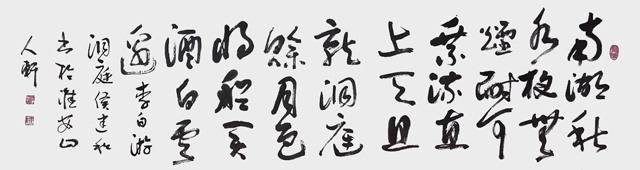 南湖秋
水夜無
煙耐可
乘流直
上天且
就洞庭
賒月色
將船買
酒白雲
邊 李白游
洞庭 侯建
書於淮安山
人軒